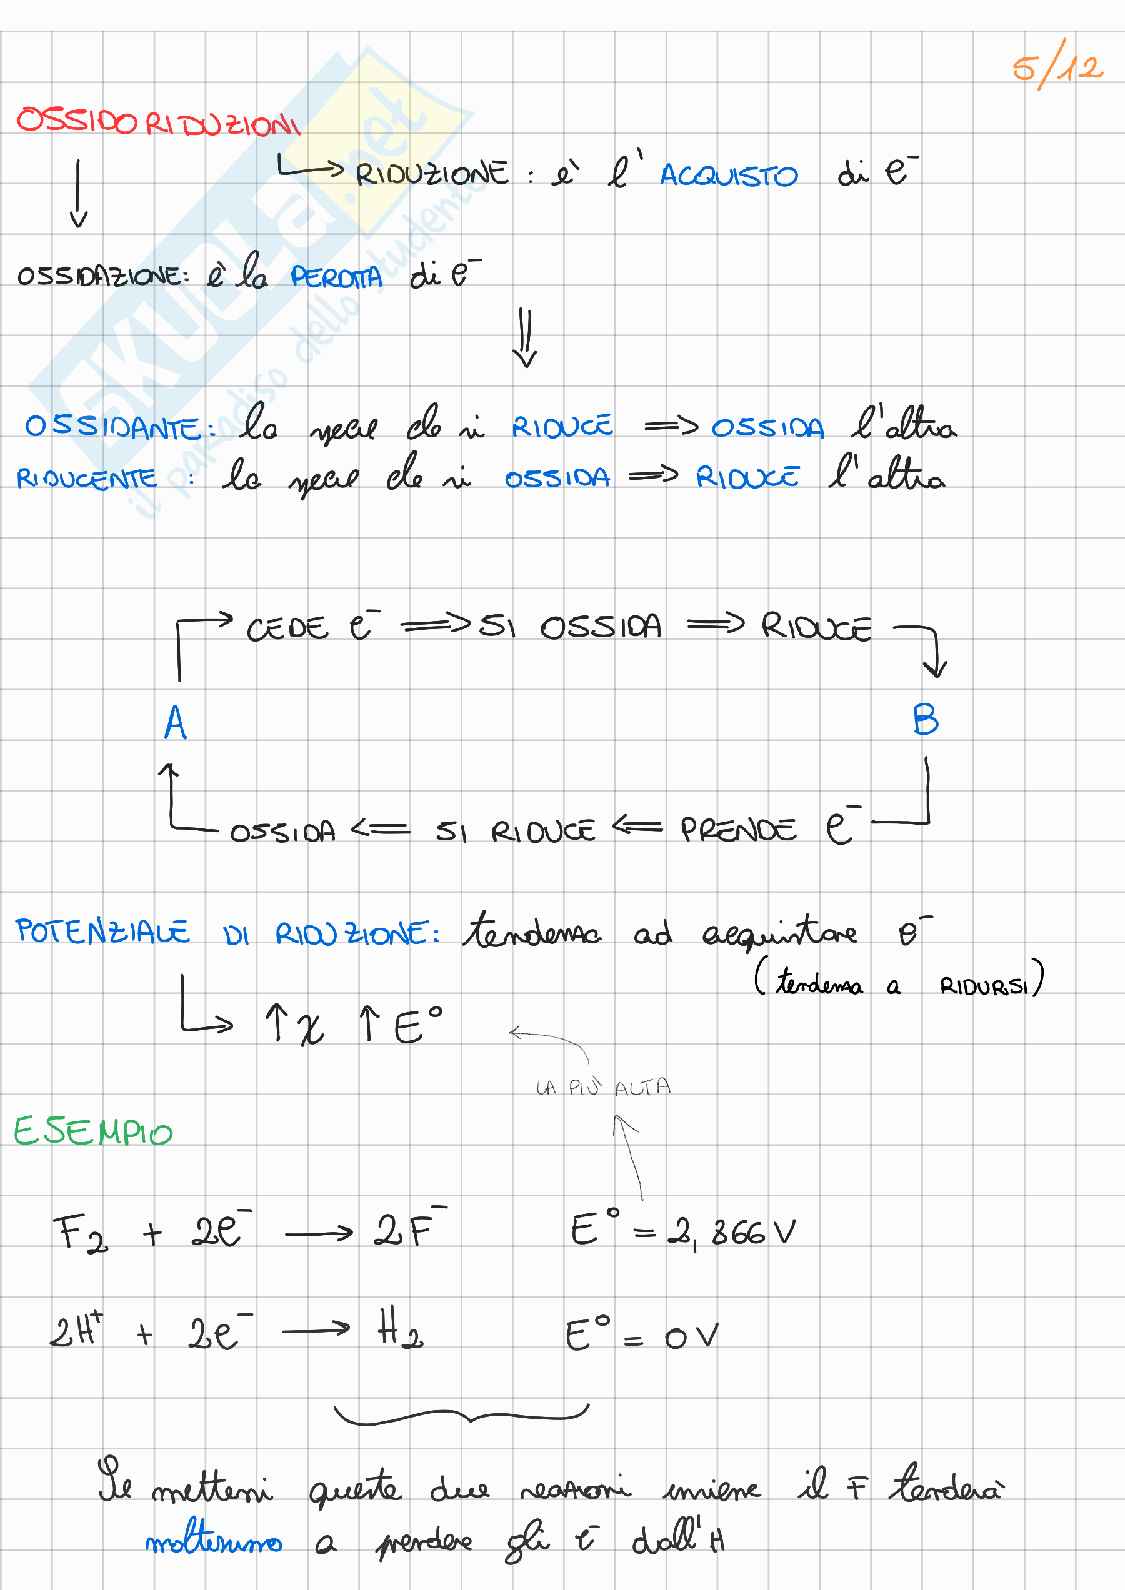 5/12
OSSIDORIDUZIONI
RIDUZIONE: è l'ACQUISTO di e⁻
OSSIDAZIONE: è la PERDITA di e⁻
OSSIDANTE: la specie che si RIDUCE ⇒ OSSIDA l'altra
RIDUCENTE: la specie che si OSSIDA ⇒ RIDUCE l'altra
CEDE e⁻ ⇒ SI OSSIDA ⇒ RIDUCE
A B
OSSIDA ⇐ SI RIDUCE ⇐ PRENDE e⁻
POTENZIALE DI RIDUZIONE: tendenza ad acquistare e⁻
(tendenza a RIDURSI)
↑χ ↑E°
LA PIÙ ALTA
ESEMPIO
F₂ + 2e⁻ → 2F⁻ E° = 2,866 V
2H⁺ + 2e⁻ → H₂ E° = 0 V
Se mettessi queste due reazioni insieme il F tenderà
moltissimo a prendere gli e⁻ dall'H
SKUOLA.net
il paradiso dello studente